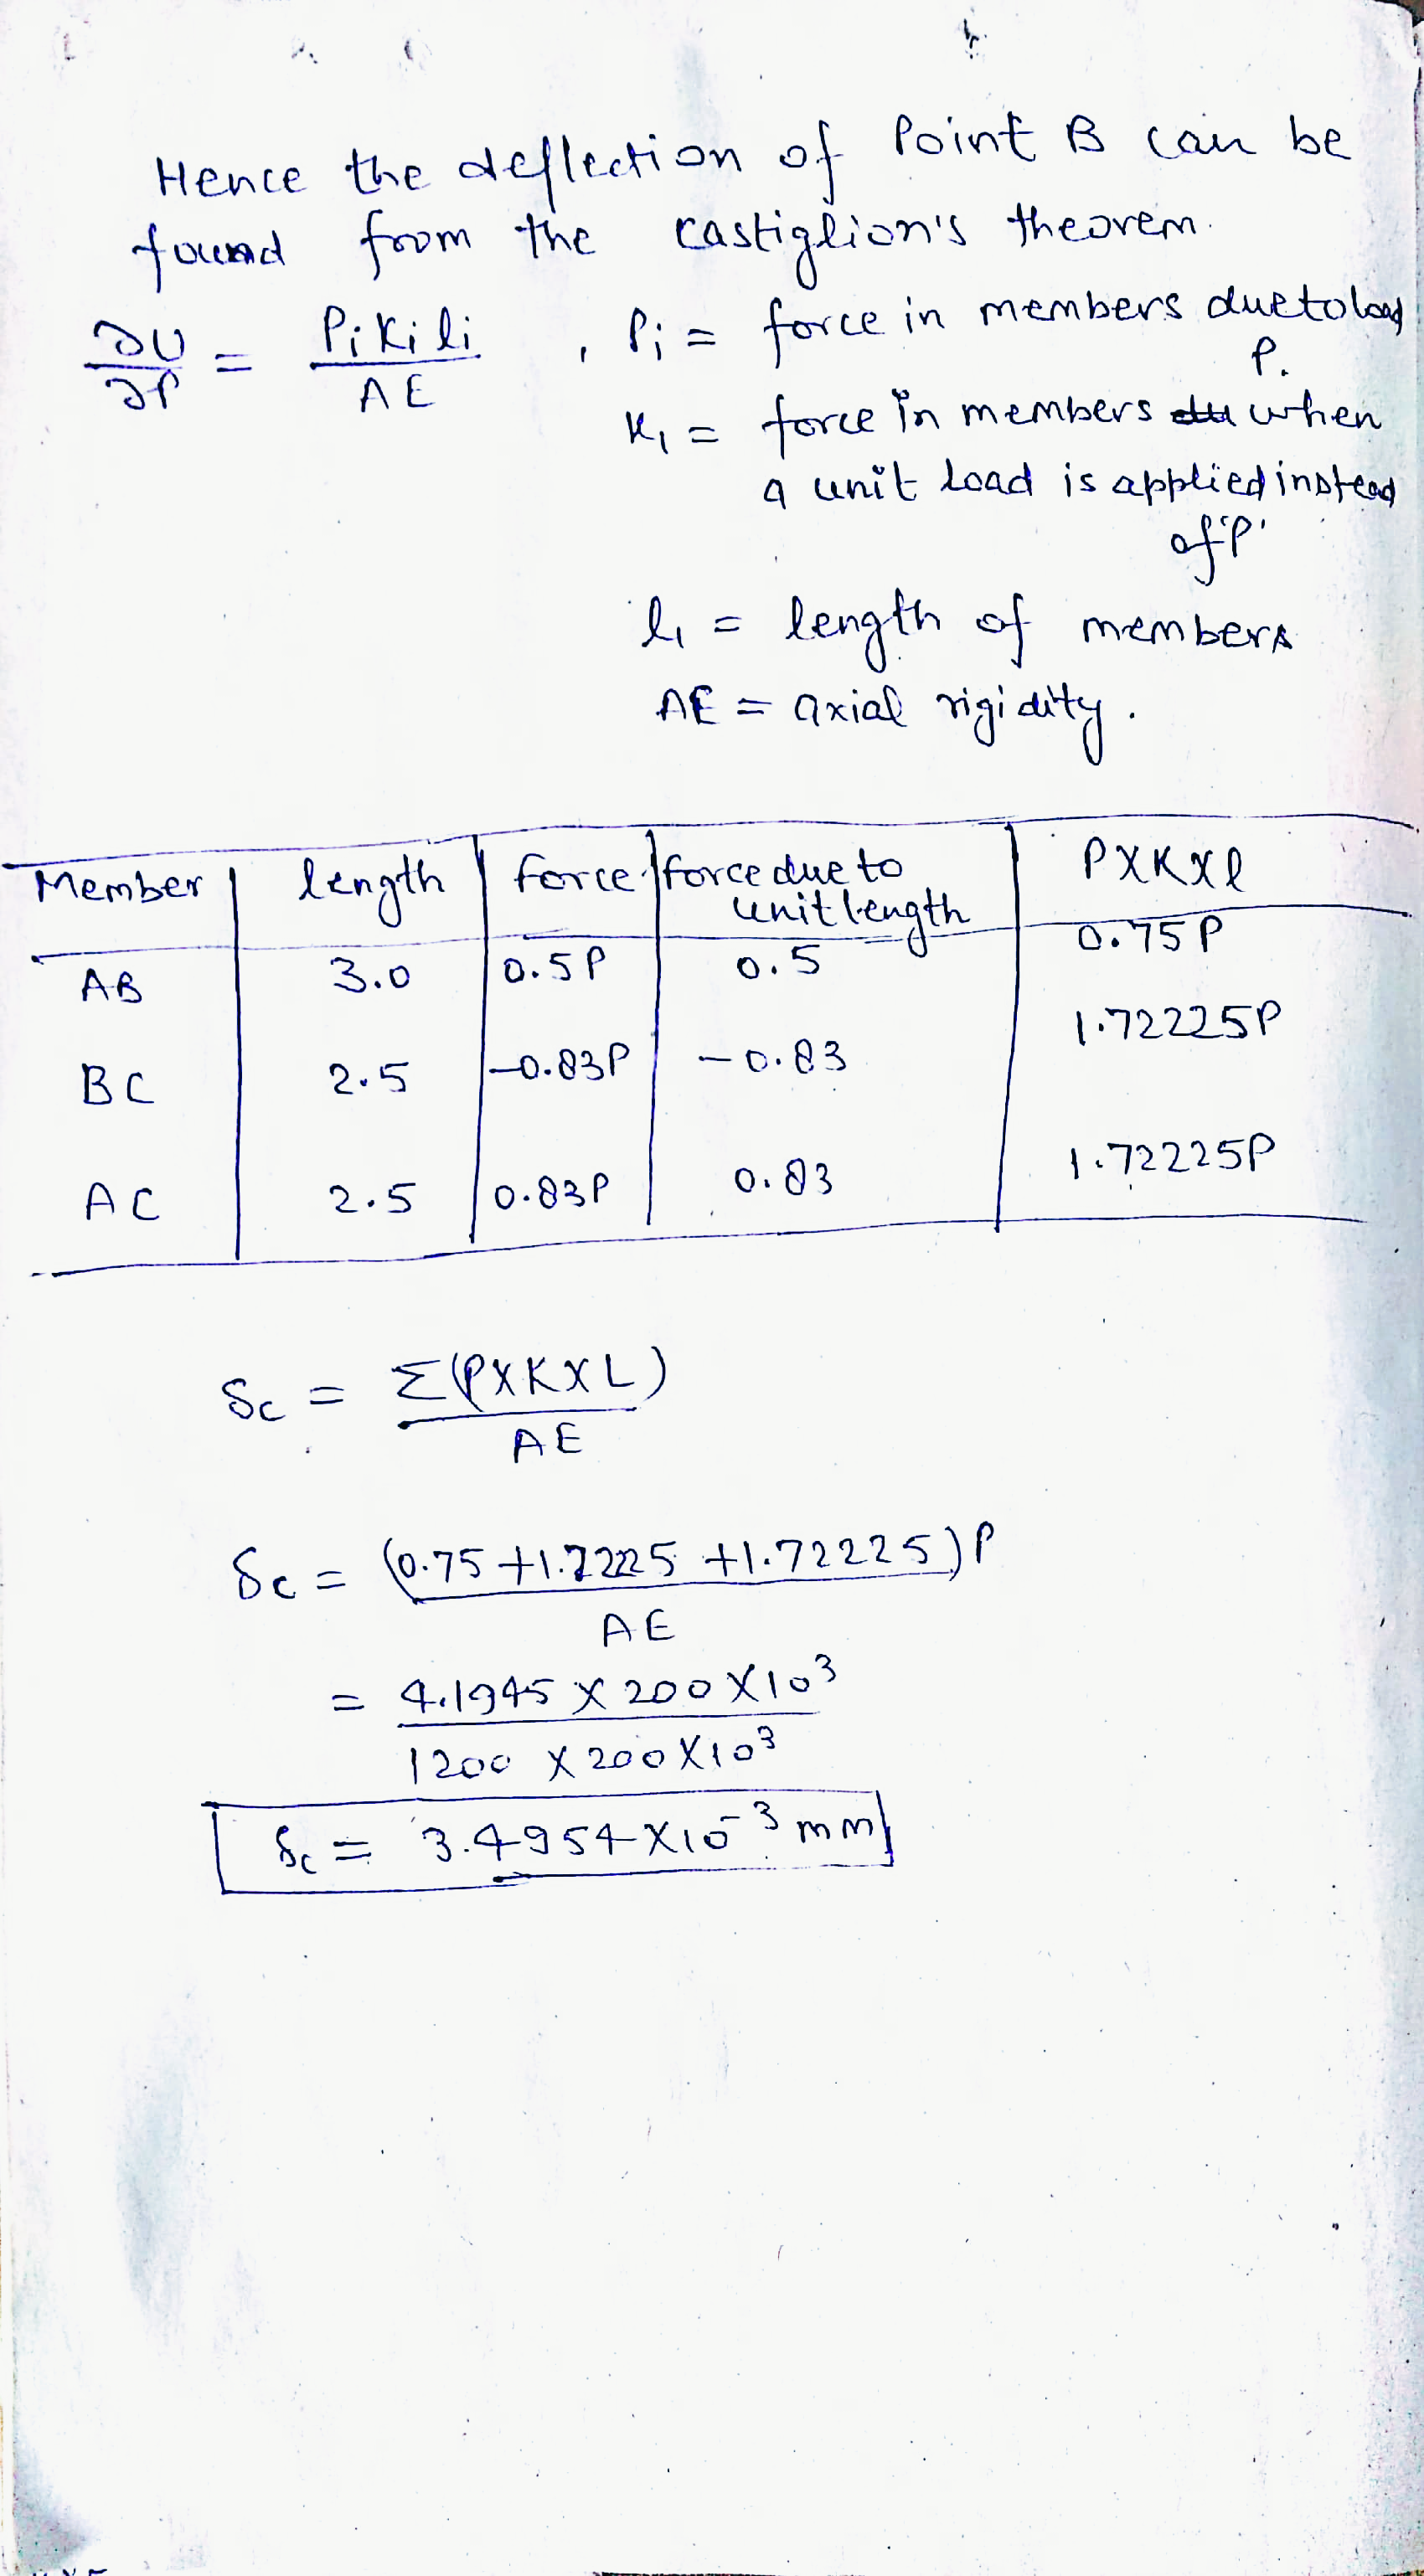 Hence the deflection of Point B can be
found from the castiglion's theorem.
∂U/∂P = Pi Ki li / AE , Pi = force in members due to load
P.
K1 = force in members when
a unit load is applied instead
of 'P'
l1 = length of members
AE = axial rigidity.
Member | length | force | force due to unit length | PXKXl
AB | 3.0 | 0.5P | 0.5 | 0.75P
BC | 2.5 | -0.83P | -0.83 | 1.72225P
AC | 2.5 | 0.83P | 0.83 | 1.72225P
δc = Σ(PXKXL)
AE
δc = (0.75 + 1.7225 + 1.72225)P
AE
= 4.1945 X 200 X10³
1200 X 200X10³
δc = 3.4954X10⁻³ mm